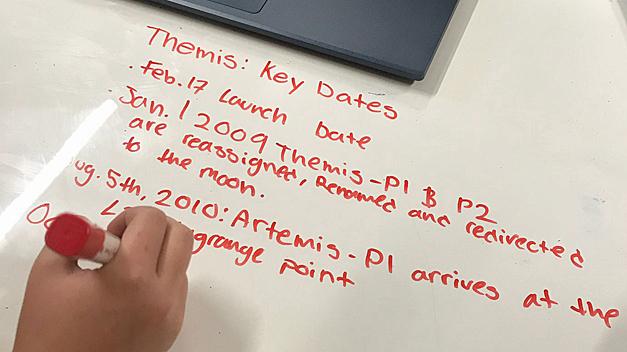 Themis: Key Dates
. Feb. 17 Launch Date
. Jan. 1 2009 Themis-P1 & P2
are reassigned, Renamed and redirected
to the moon.
ug. 5th, 2010: Artemis-P1 arrives at the
L grange point
O